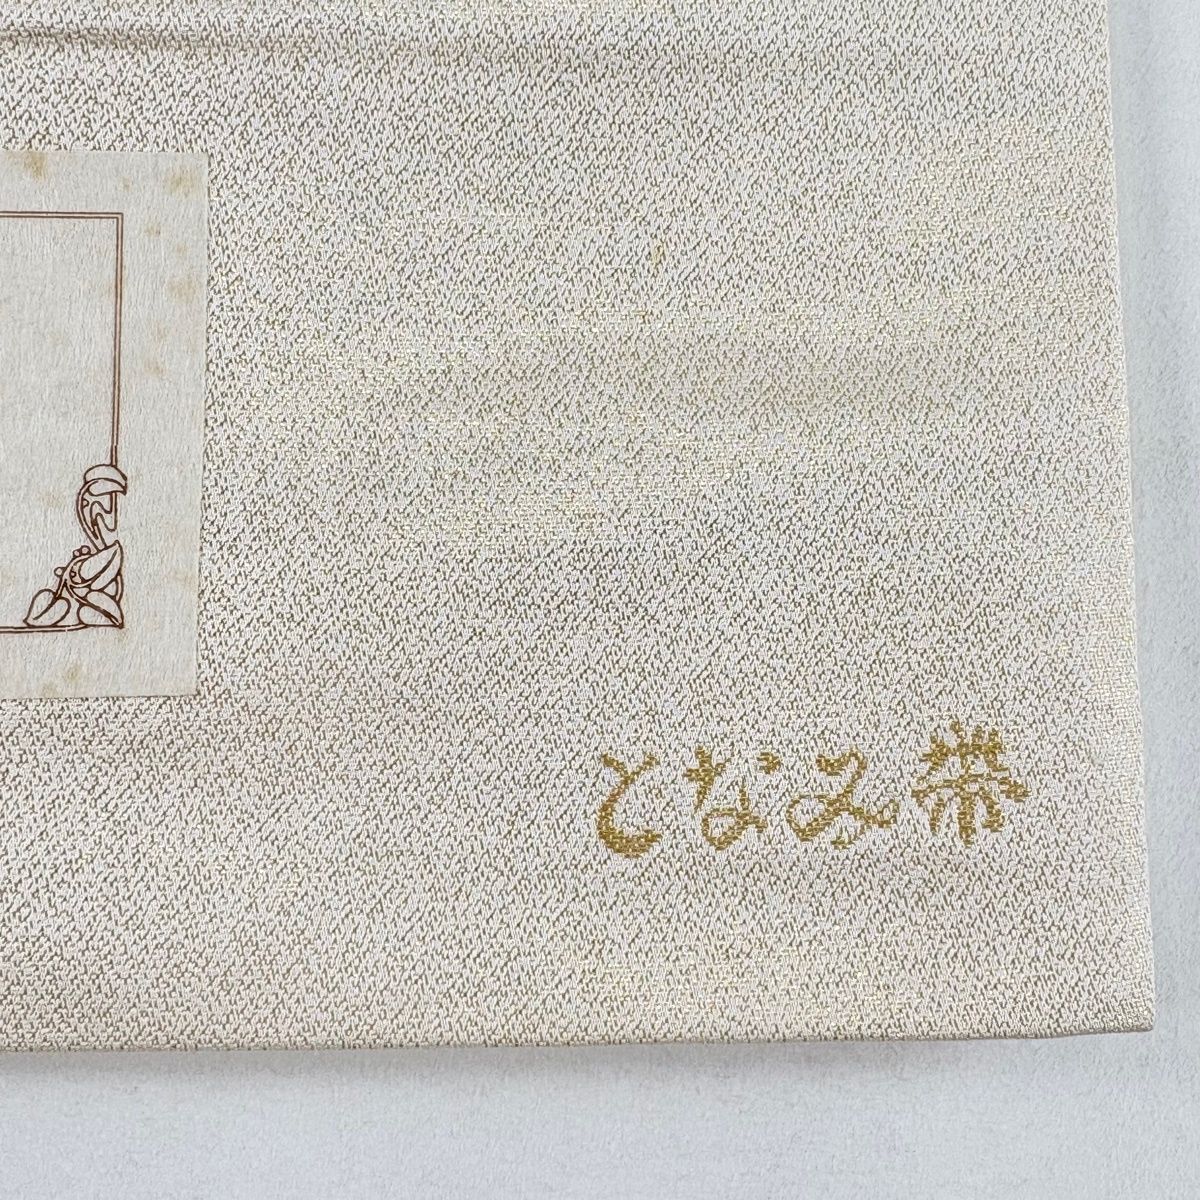 となみ帯